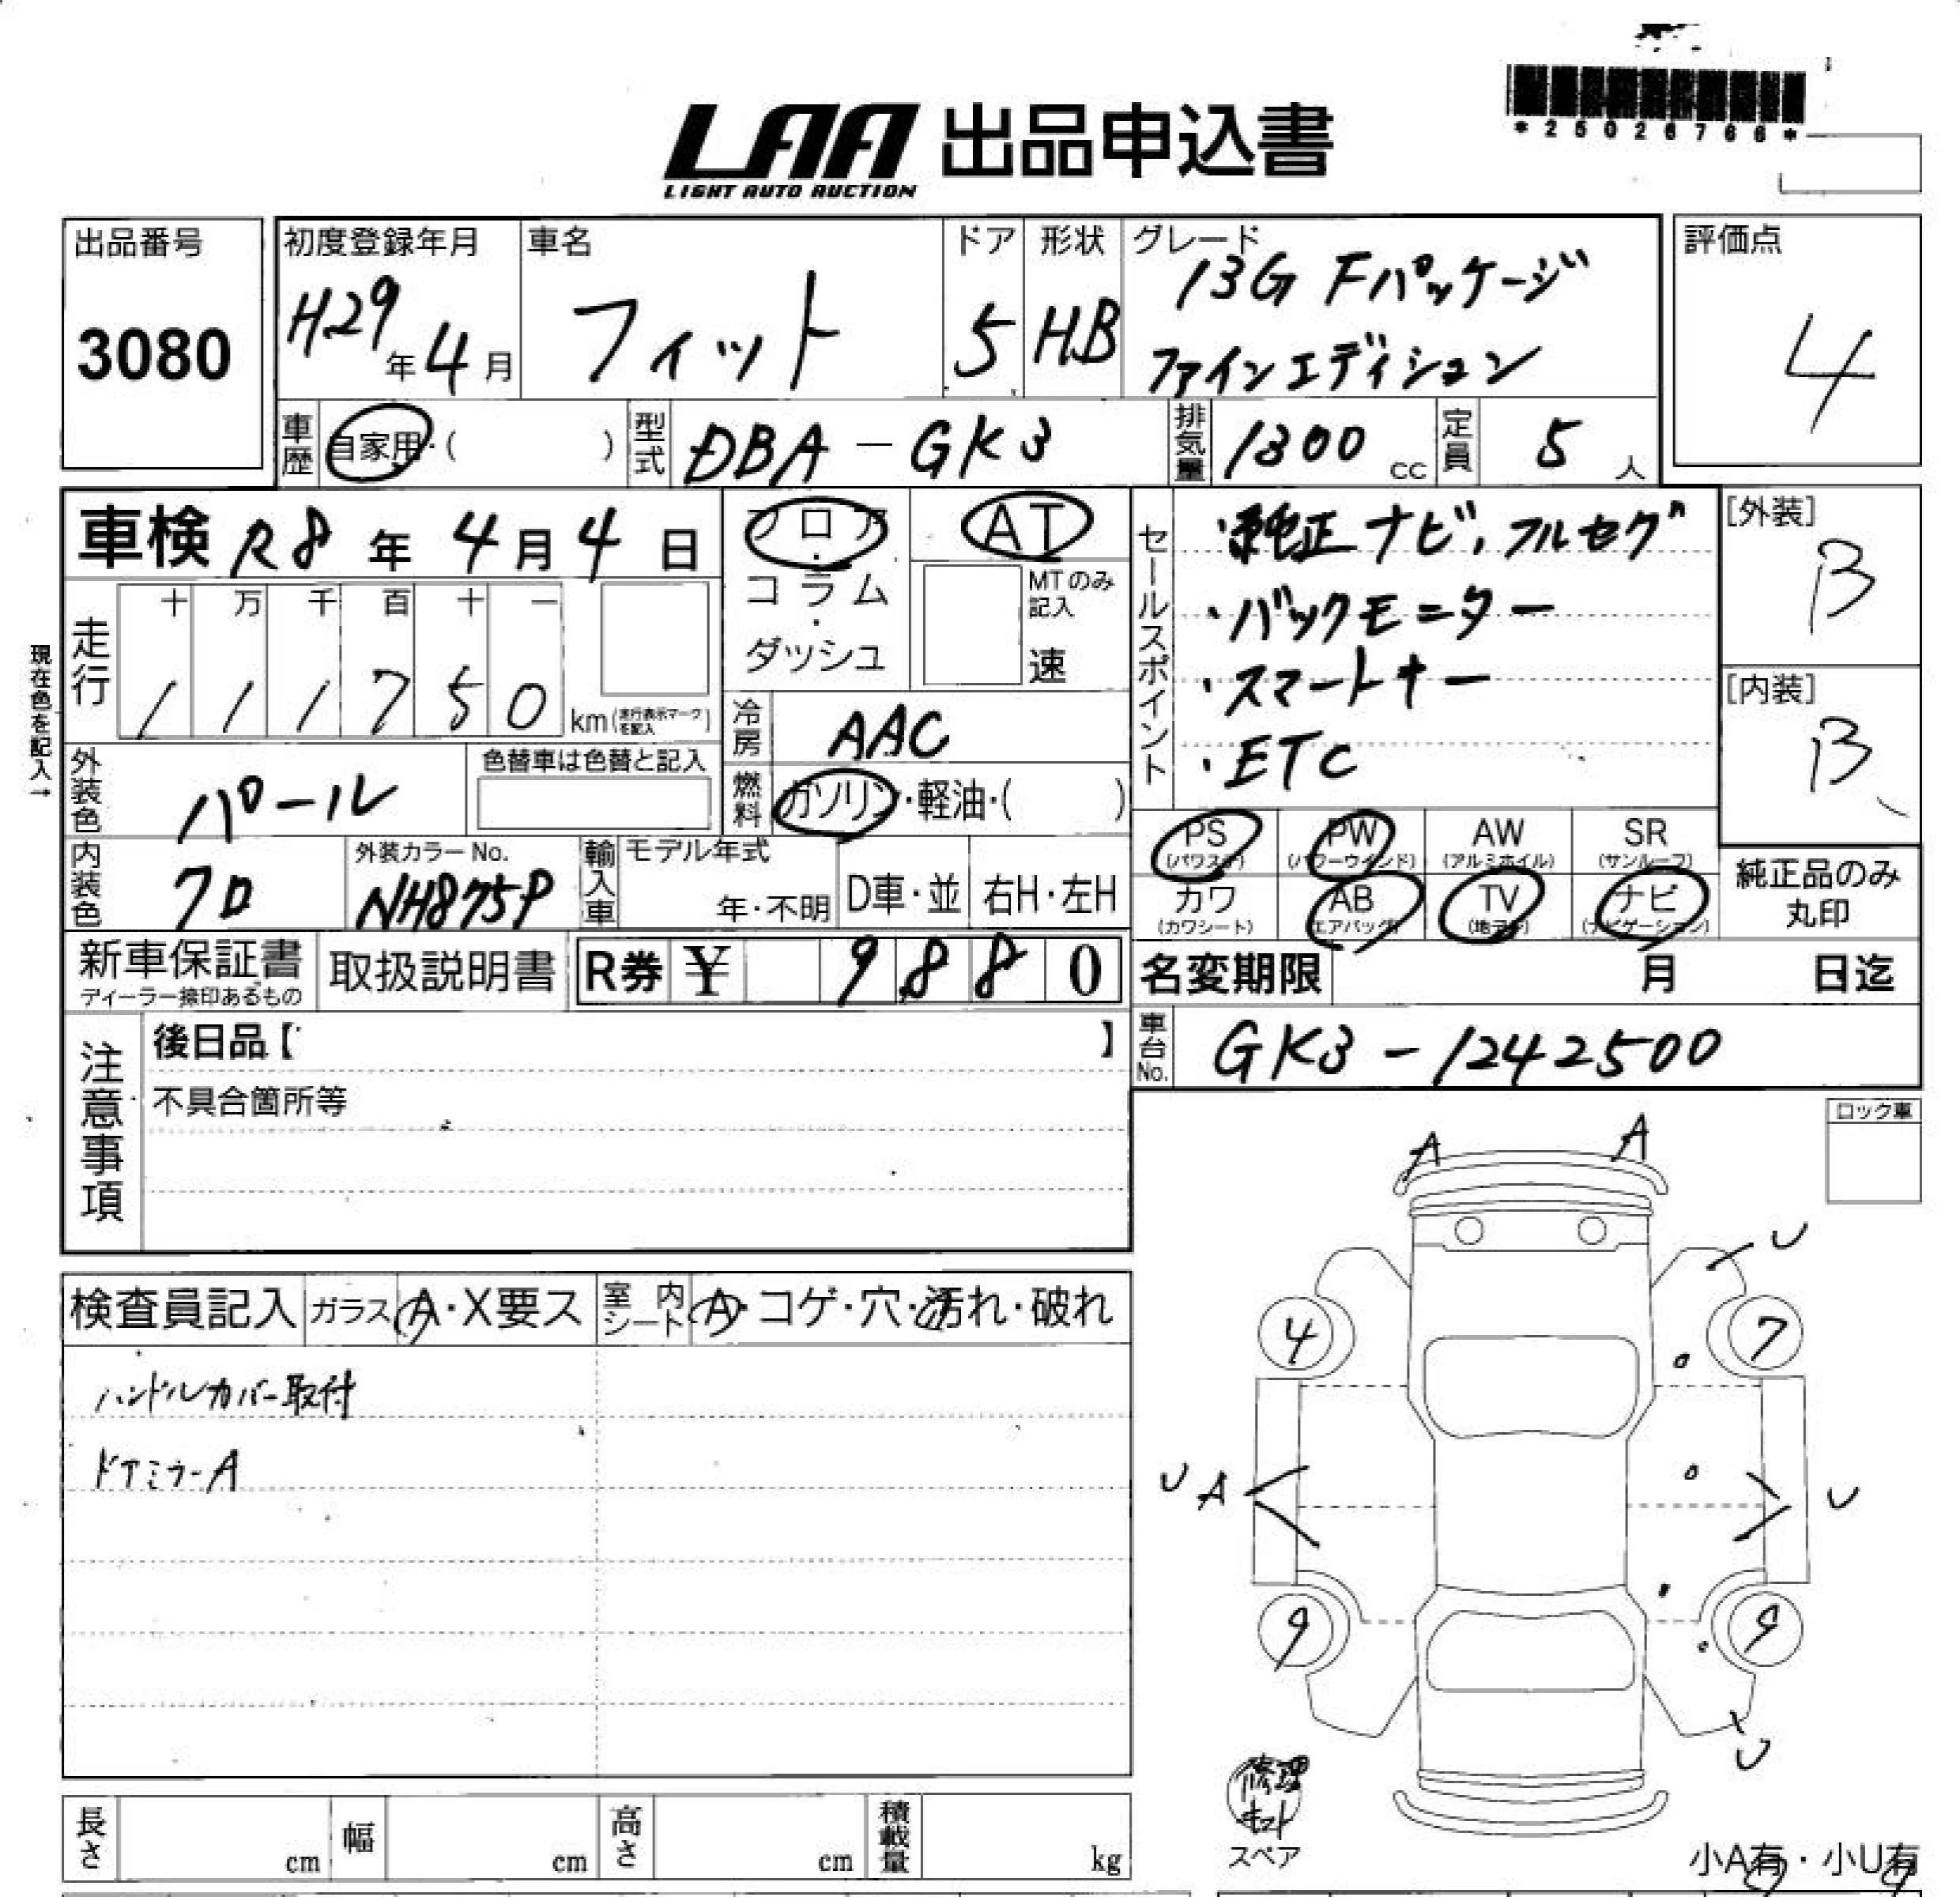 *25026766*
LAA 出品申込書
LIGHT AUTO AUCTION
出品番号
3080
初度登録年月
H29年4月
車名
フィット
ドア
5
形状
HB
グレード
13G Fパッケージ
ファインエディション
評価点
4
車歴 自家用・( )
型式 DBA-GK3
排気量 1300 cc
定員 5人
車検 R8年4月4日
フロア・コラム・ダッシュ
AT
MTのみ記入
速
セールスポイント
・純正ナビ,フルセグ
・バックモニター
・スマートキー
・ETC
[外装]
B
[内装]
B
現在色を記入→
走行
十 万 千 百 十 一
1 1 1 7 5 0 km(走行表示マークを記入)
冷房 AAC
外装色 パール
色替車は色替と記入
燃料 ガソリン・軽油・( )
PS(パワステ) PW(パワーウインド) AW(アルミホイル) SR(サンルーフ)
カワ(カワシート) AB(エアバッグ) TV(地デジ) ナビ(ナビゲーション)
純正品のみ
丸印
内装色 クロ
外装カラーNo.
NH875P
輸入車
モデル年式
年・不明
D車・並
右H・左H
新車保証書
ディーラー捺印あるもの
取扱説明書
R券 ¥ 9880
名変期限 月 日迄
注意事項
後日品【 】
不具合箇所等
車台No. GK3-1242500
ロック車
A A
U
4 7
U A U
9 9
U
検査員記入
ガラス A・X要ス
室内シート A・コゲ・穴・汚れ・破れ
ハンドルカバー取付
ドアミラーA
修理
キット
スペア
小A有・小U有
長さ cm
幅 cm
高さ cm
積載量 kg